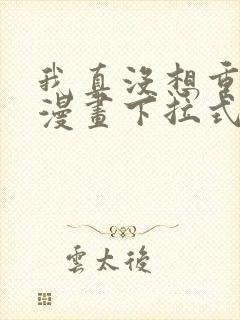 我真沒想重
漫畫下拉式
雲太後